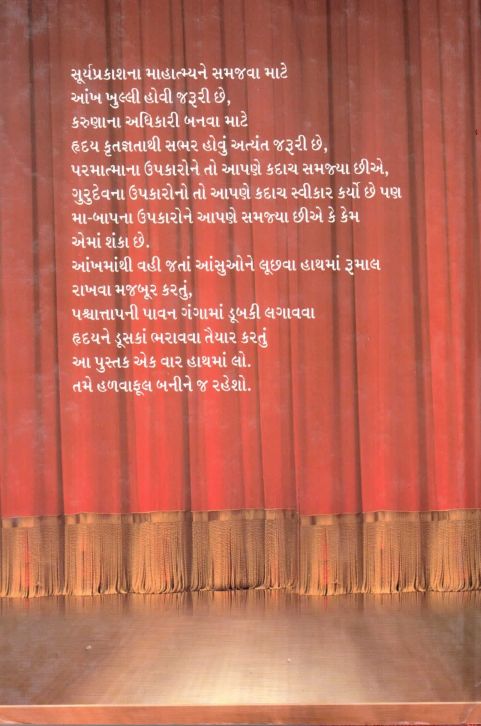 સૂર્યપ્રકાશના માહાત્મ્યને સમજવા માટે
આંખ ખુલ્લી હોવી જરૂરી છે,
કરુણાના અધિકારી બનવા માટે
હૃદય કૃતજ્ઞતાથી સભર હોવું અત્યંત જરૂરી છે,
પરમાત્માના ઉપકારોને તો આપણે કદાચ સમજ્યા છીએ,
ગુરુદેવના ઉપકારોનો તો આપણે કદાચ સ્વીકાર કર્યો છે પણ
મા-બાપના ઉપકારોને આપણે સમજ્યા છીએ કે કેમ
એમાં શંકા છે.
આંખમાંથી વહી જતાં આંસુઓને લૂછવા હાથમાં રૂમાલ
રાખવા મજબૂર કરતું,
પશ્ચાત્તાપની પાવન ગંગામાં ડૂબકી લગાવવા
હૃદયને ડૂસકાં ભરાવવા તૈયાર કરતું
આ પુસ્તક એક વાર હાથમાં લો.
તમે હળવાફૂલ બનીને જ રહેશો.